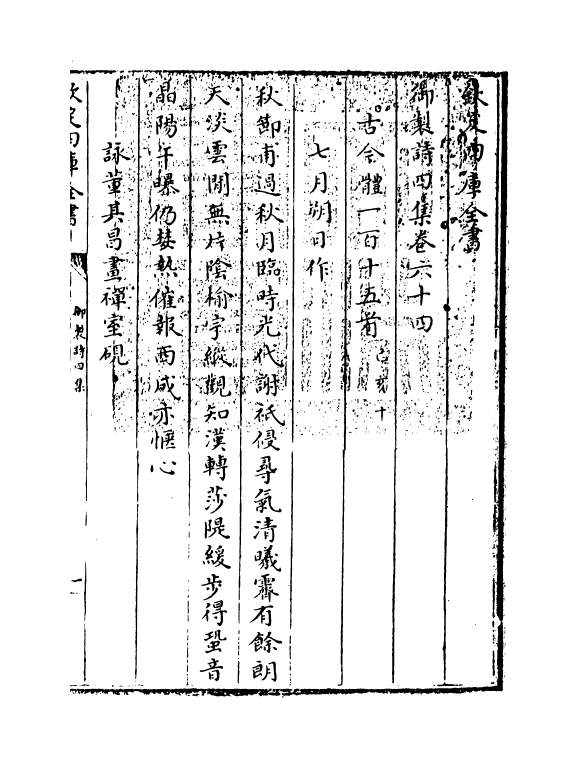 欽定四庫全書
御製詩四集卷六十四
古今體一百十五首
七月朔日作
秋節甫過秋月臨時光代謝祇侵尋氣清曦霽有餘朗
天淡雲閒無片陰榆宇縱觀知漢轉莎隄緩步得蛩音
晶陽午曝仍蒸熱催報西成亦愜心
詠董其昌畫禪室硯
欽定四庫全書
御製詩四集
一